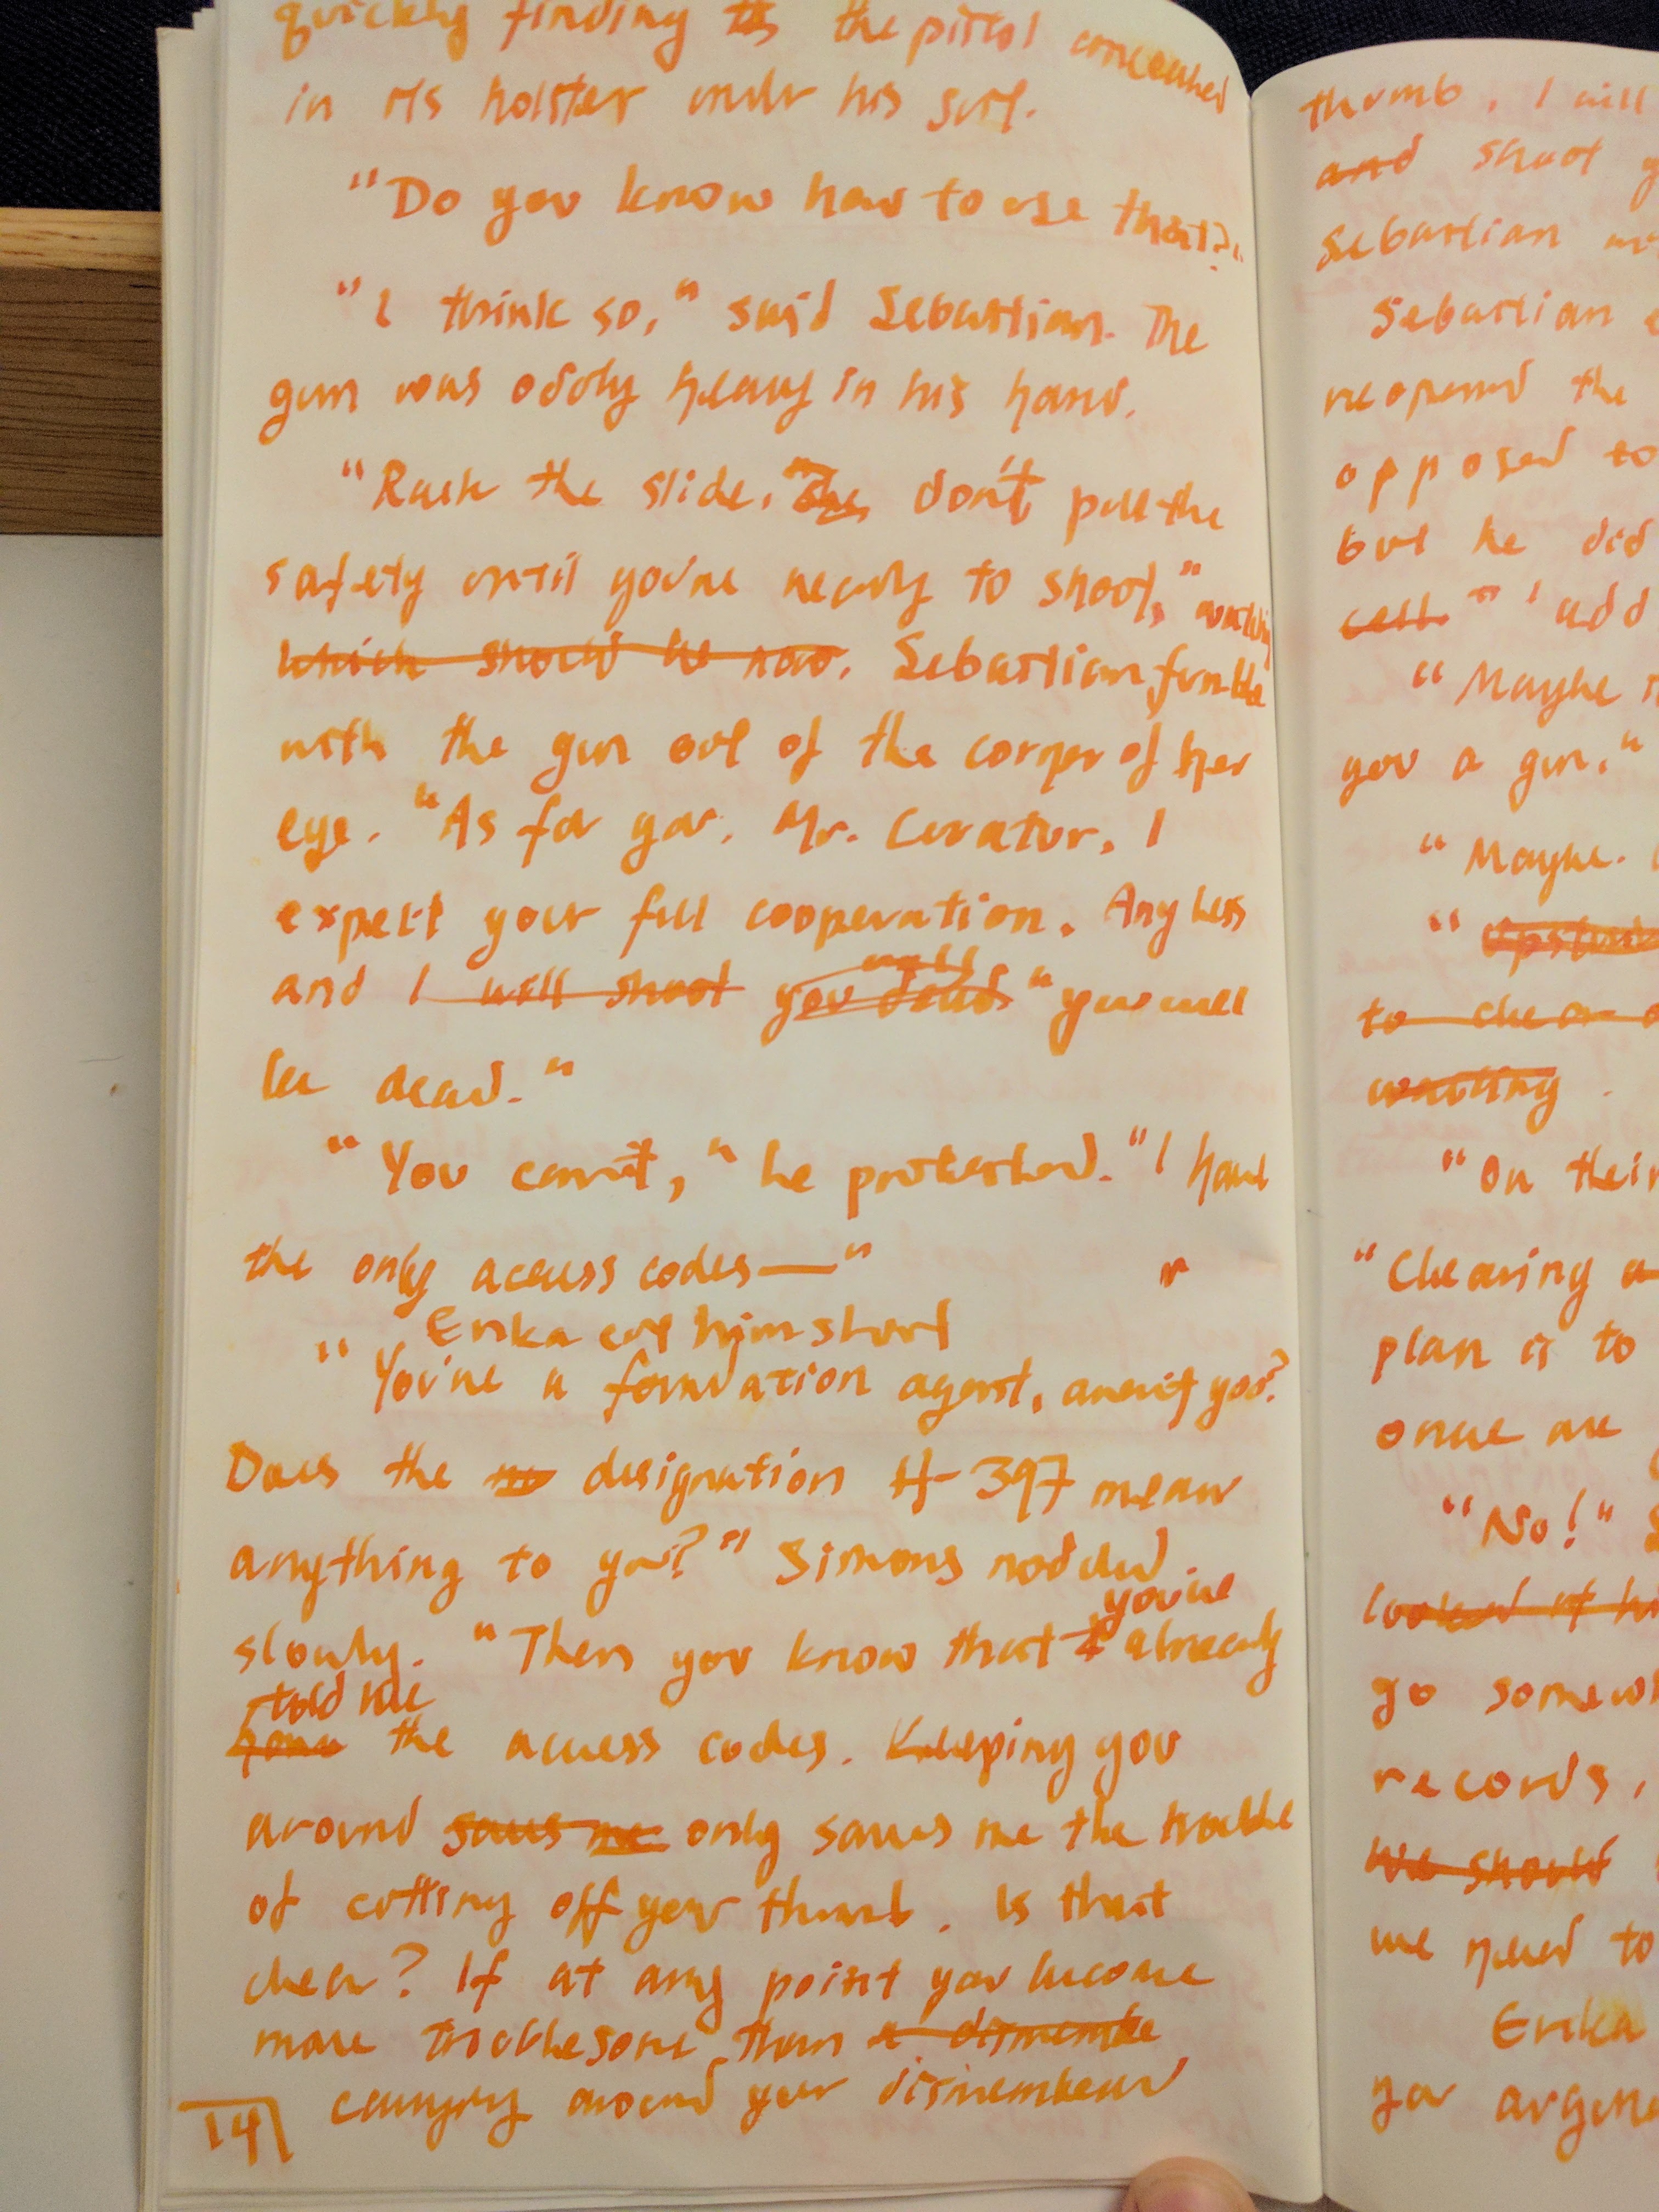 quickly finding the pistol concealed
in its holster under his suit.
"Do you know how to use that?"
"I think so," said Sebastian. The
gun was oddly heavy in his hand.
"Rack the slide, don't pull the
safety until you're ready to shoot," watching
which should be now. Sebastian fumble
with the gun out of the corner of her
eye. "As for you, Mr. Curator, I
expect your full cooperation. Any less
and I will shoot you dead" you will
be dead."
"You can't," he protested. "I have
the only access codes—"
Erika cut him short
"You're a foundation agent, aren't you?
Does the no designation H-397 mean
anything to you?" Simons nodded
slowly. "Then you know that I you've already
told me
have the access codes. Keeping you
around saves me only saves me the trouble
of cutting off your thumb. Is that
clear? If at any point you become
more troublesome than a dismembe
carrying around your dismembered
14
thumb, I will
and shoot y
Sebastian
Sebastian
reopened the
opposed to
but he did
cell. " I add
"Maybe
you a gun."
"Maybe.
"Upstairs
to clear
waiting.
"On their
"Clearing a
plan is to
once are
"No!" S
looked at hi
go somew
records,
We should
we need to
Erika
you argume